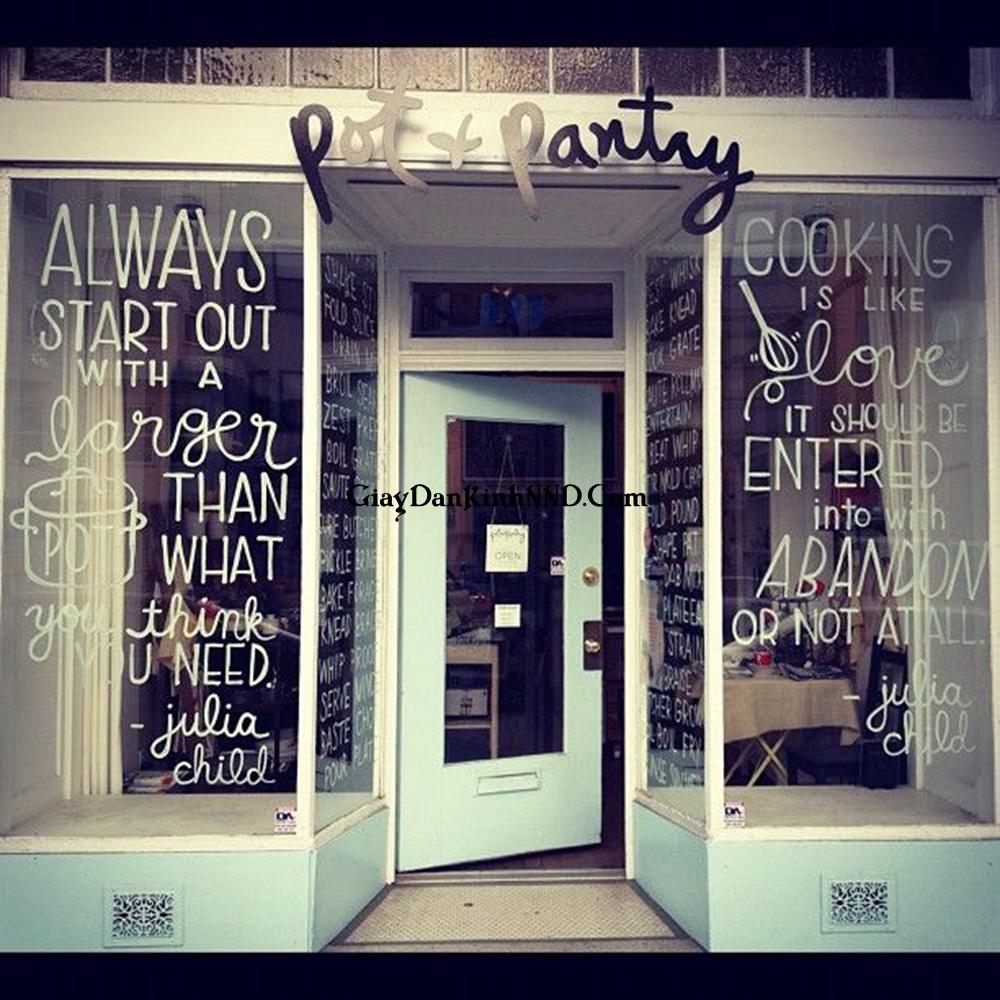 pot + pantry
ALWAYS
START OUT
WITH A
larger
THAN
POT
WHAT
you think
YOU NEED.
- julia
child
FOLD SLICE
DRAIN
BROIL SEAR
ZEST
BOIL GRATE
SAUTE
PICKLE BRINE
BAKE
KNEAD
WHIP
SERVE
BASTE
POUR PLATE
GiayDanKinhNND.Com
pot + pantry
OPEN
WHISK
KNEAD
GRATE
ENTERTAIN
BEAT WHIP
MOLD
POUND
SHAPE PAT
DAB
PLATE EAT
STRAIN
BRAISE
GROW
BOIL FRY
COOKING
IS LIKE
love
IT SHOULD BE
ENTERED
into with
ABANDON
OR NOT AT ALL.
- julia
child
DA
DA
DA